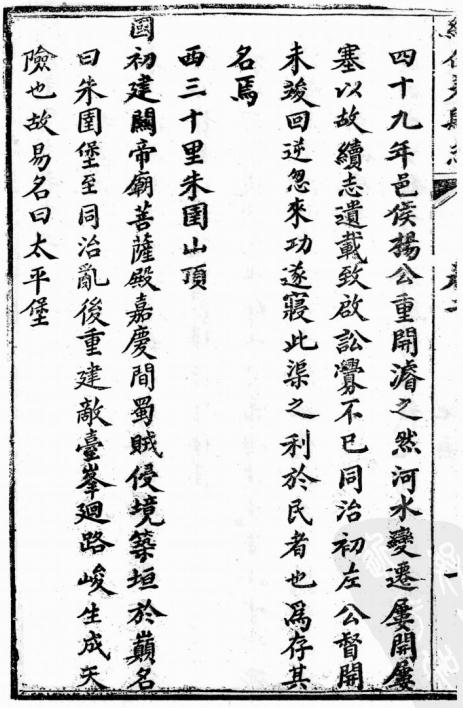 四十九年邑侯楊公重開濬之然河水變遷屢開屢
塞以故續志遺載致啟訟釁不已同治初左公督開
未竣回逆忽來功遂寢此渠之利於民者也爲存其
名焉
西三十里朱圉山頂
國初建關帝廟菩薩殿嘉慶間蜀賊侵境築垣於巔名
曰朱圉堡至同治亂後重建敵臺峯廻路峻生成天
險也故易名曰太平堡